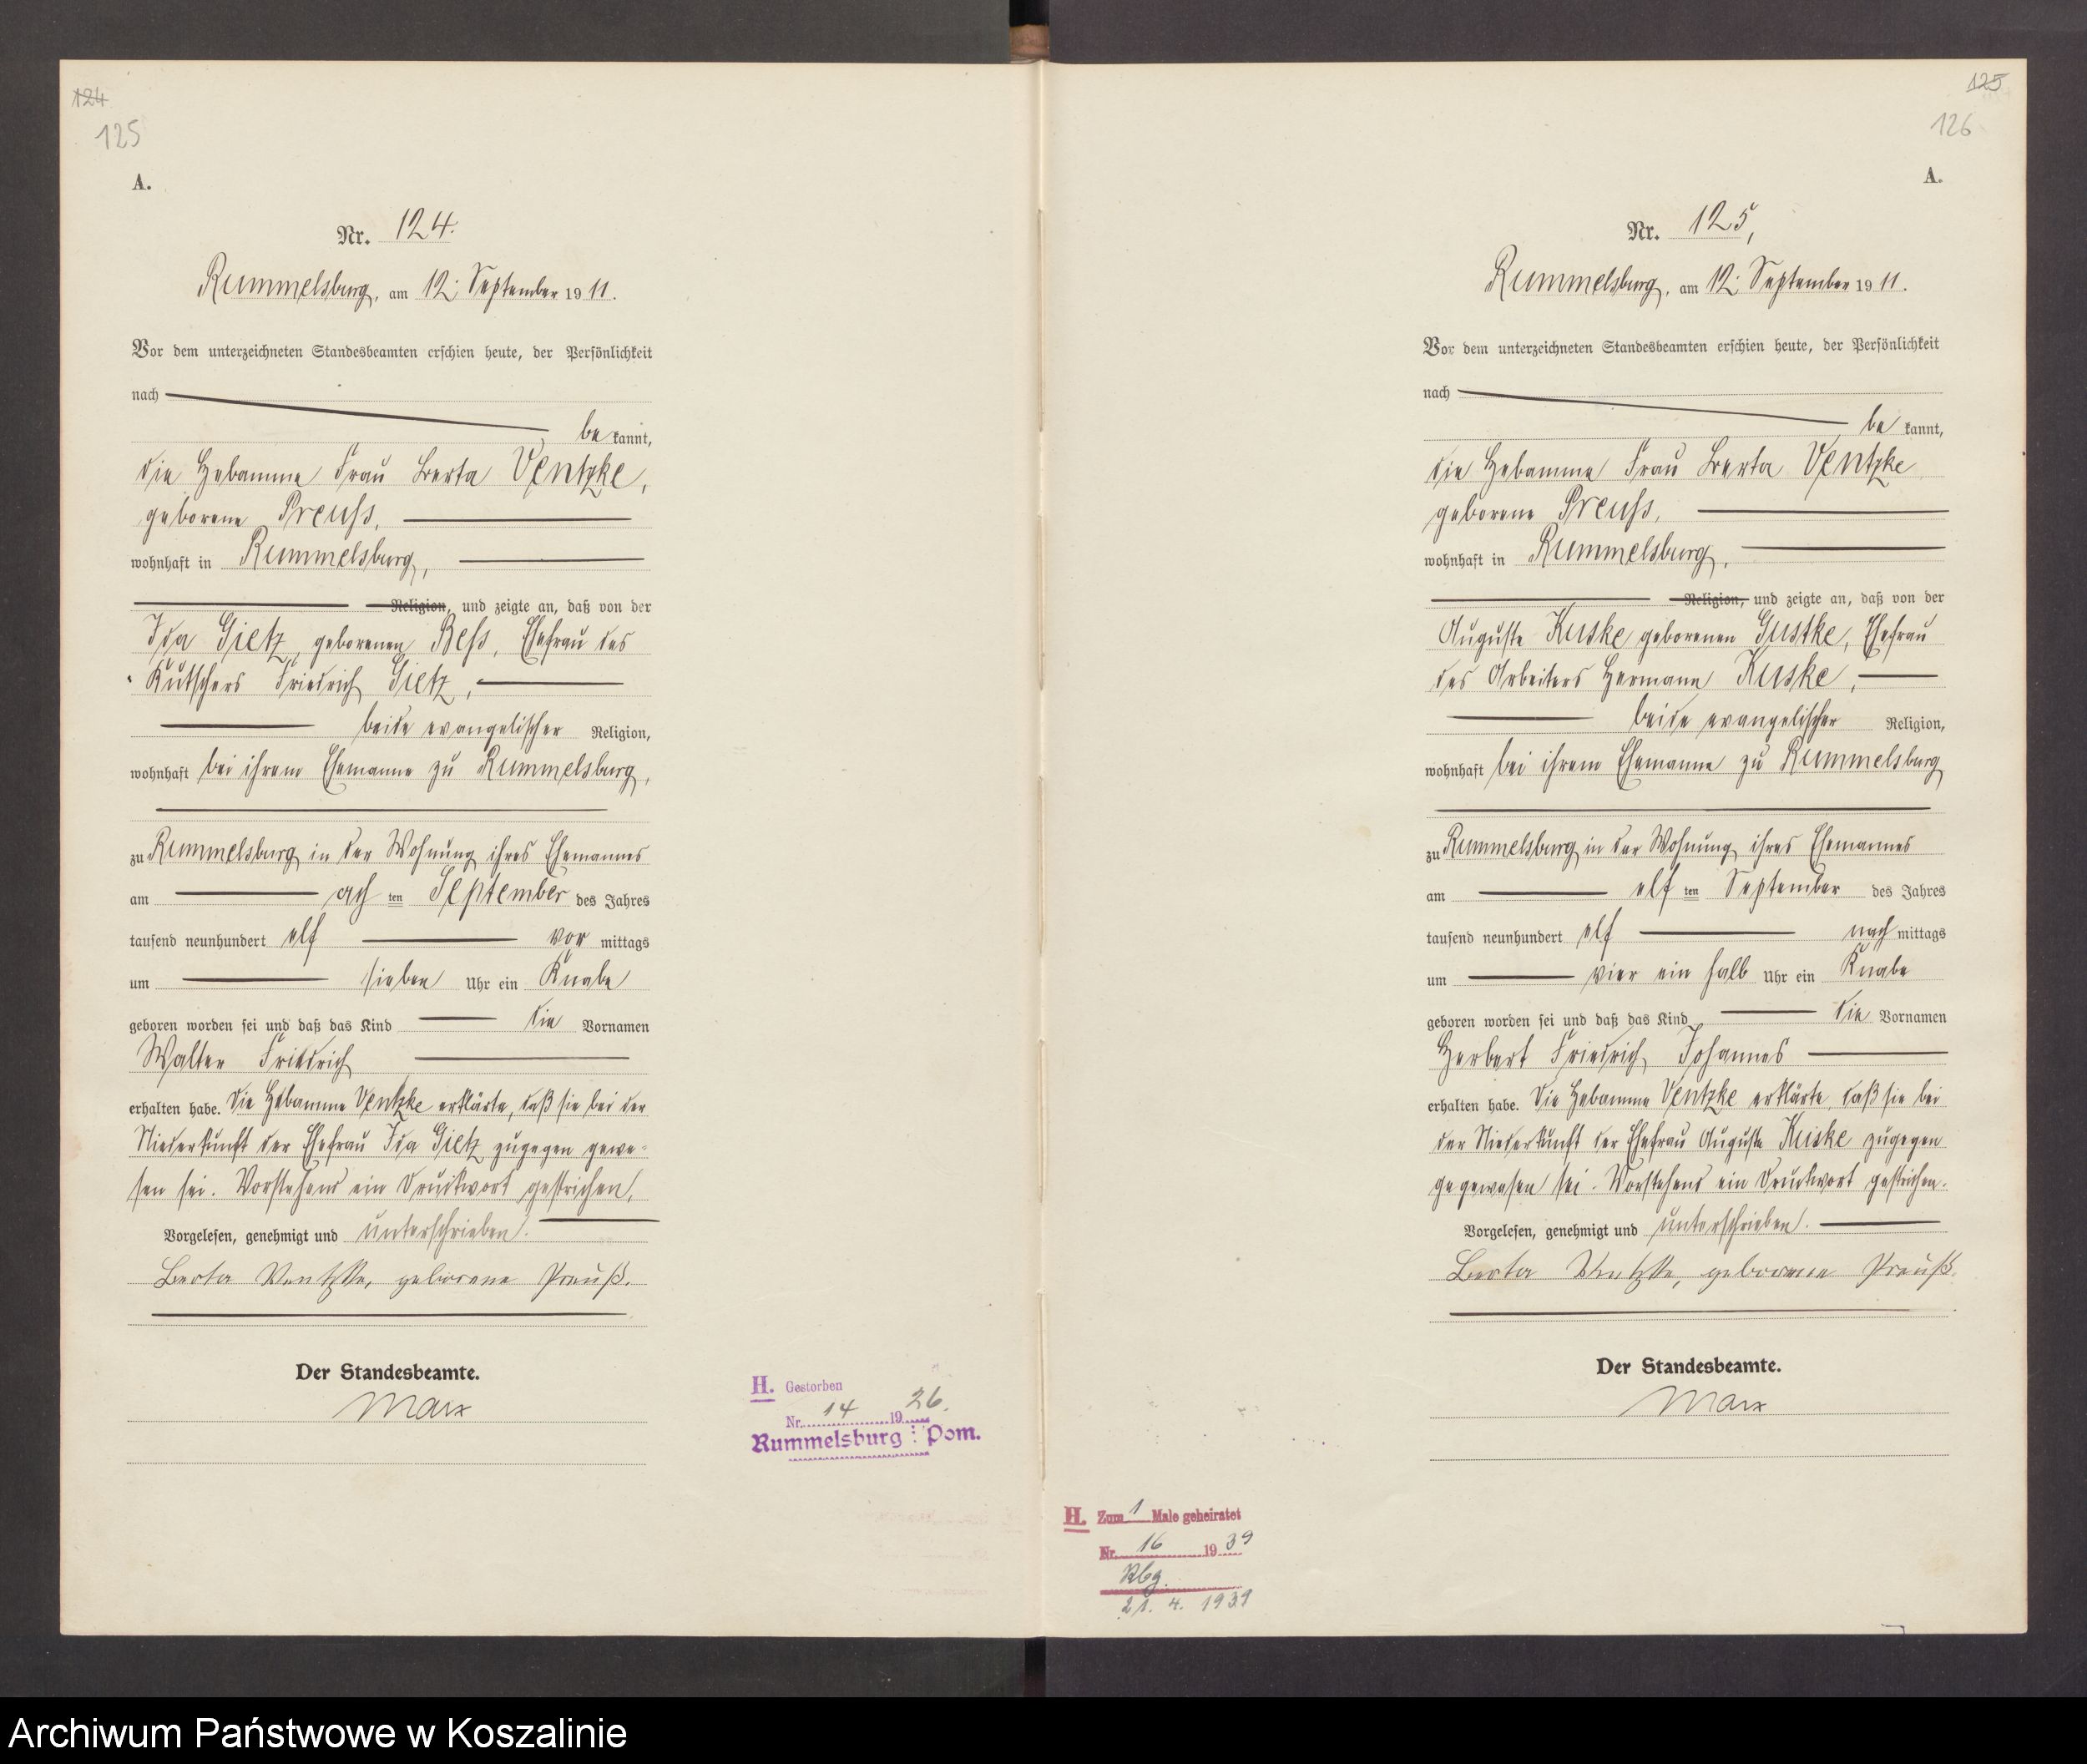 124
125
A.
Nr. 124.
Rummelsburg, am 12. September 1911.
Vor dem unterzeichneten Standesbeamten erschien heute, der Persönlichkeit
nach
be kannt,
die Hebamme Frau Berta Ventzke,
geborene Preuss,
wohnhaft in Rummelsburg,
Religion, und zeigte an, daß von der
Ida Gietz, geborenen Bess, Ehefrau des
Kutschers Friedrich Gietz,
beide evangelischer Religion,
wohnhaft bei ihrem Ehemanne zu Rummelsburg,
zu Rummelsburg in der Wohnung ihres Ehemannes
am ach ten September des Jahres
tausend neunhundert elf vor mittags
um sieben Uhr ein Knabe
geboren worden sei und daß das Kind die Vornamen
Walter Friedrich
erhalten habe. Die Hebamme Ventzke erklärte, daß sie bei der
Niederkunft der Ehefrau Ida Gietz zugegen gewe-
sen sei. Vorstehend ein Druckwort gestrichen.
Vorgelesen, genehmigt und unterschrieben.
Berta Ventzke, geborene Preuß.
Der Standesbeamte.
Marx
H. Gestorben
Nr. 14 1926.
Rummelsburg : Pom.
125
126
A.
Nr. 125,
Rummelsburg, am 12. September 1911.
Vor dem unterzeichneten Standesbeamten erschien heute, der Persönlichkeit
nach
be kannt,
die Hebamme Frau Berta Ventzke
geborene Preuss,
wohnhaft in Rummelsburg,
Religion, und zeigte an, daß von der
Auguste Kuske geborenen Gustke, Ehefrau
des Arbeiters Hermann Kuske,
beide evangelischer Religion,
wohnhaft bei ihrem Ehemanne zu Rummelsburg
zu Rummelsburg in der Wohnung ihres Ehemannes
am elf ten September des Jahres
tausend neunhundert elf nach mittags
um vier ein halb Uhr ein Knabe
geboren worden sei und daß das Kind die Vornamen
Herbert Friedrich Johannes
erhalten habe. Die Hebamme Ventzke erklärte, daß sie bei
der Niederkunft der Ehefrau Auguste Kuske zugegen
gegewesen sei. Vorstehend ein Druckwort gestrichen.
Vorgelesen, genehmigt und unterschrieben.
Berta Ventzke, geborene Preuß.
Der Standesbeamte.
Marx
H. Zum 1 Male geheiratet
Nr. 16 1939
Rbg.
21. 4. 1939
Archiwum Państwowe w Koszalinie